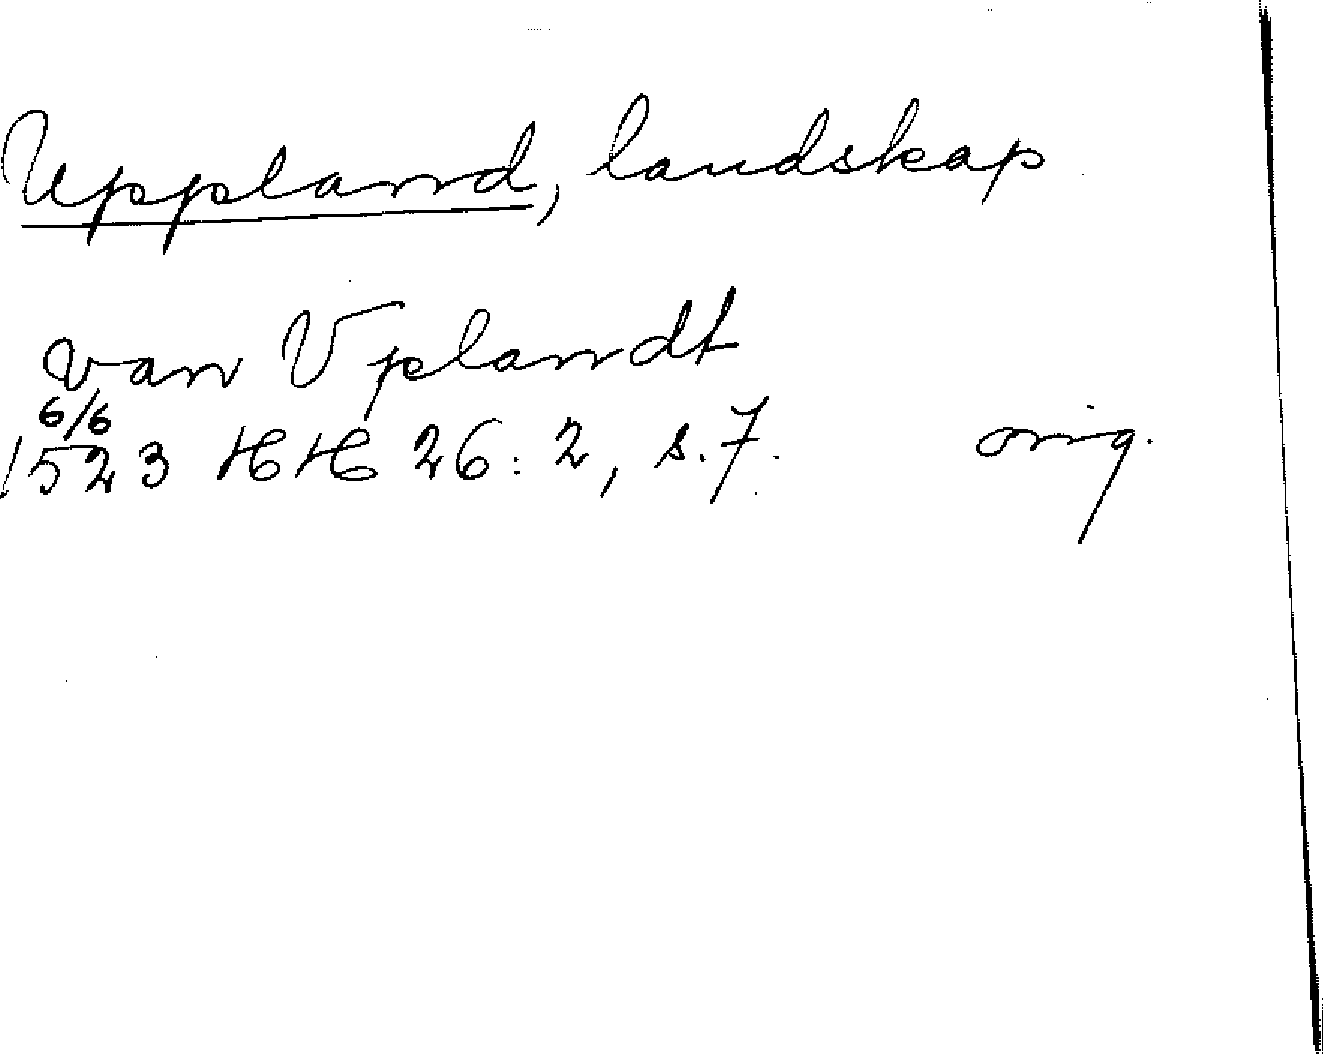 Uppland, landskap
van Vplandt
6/6
1523 HH 26:2, s.7. orig.